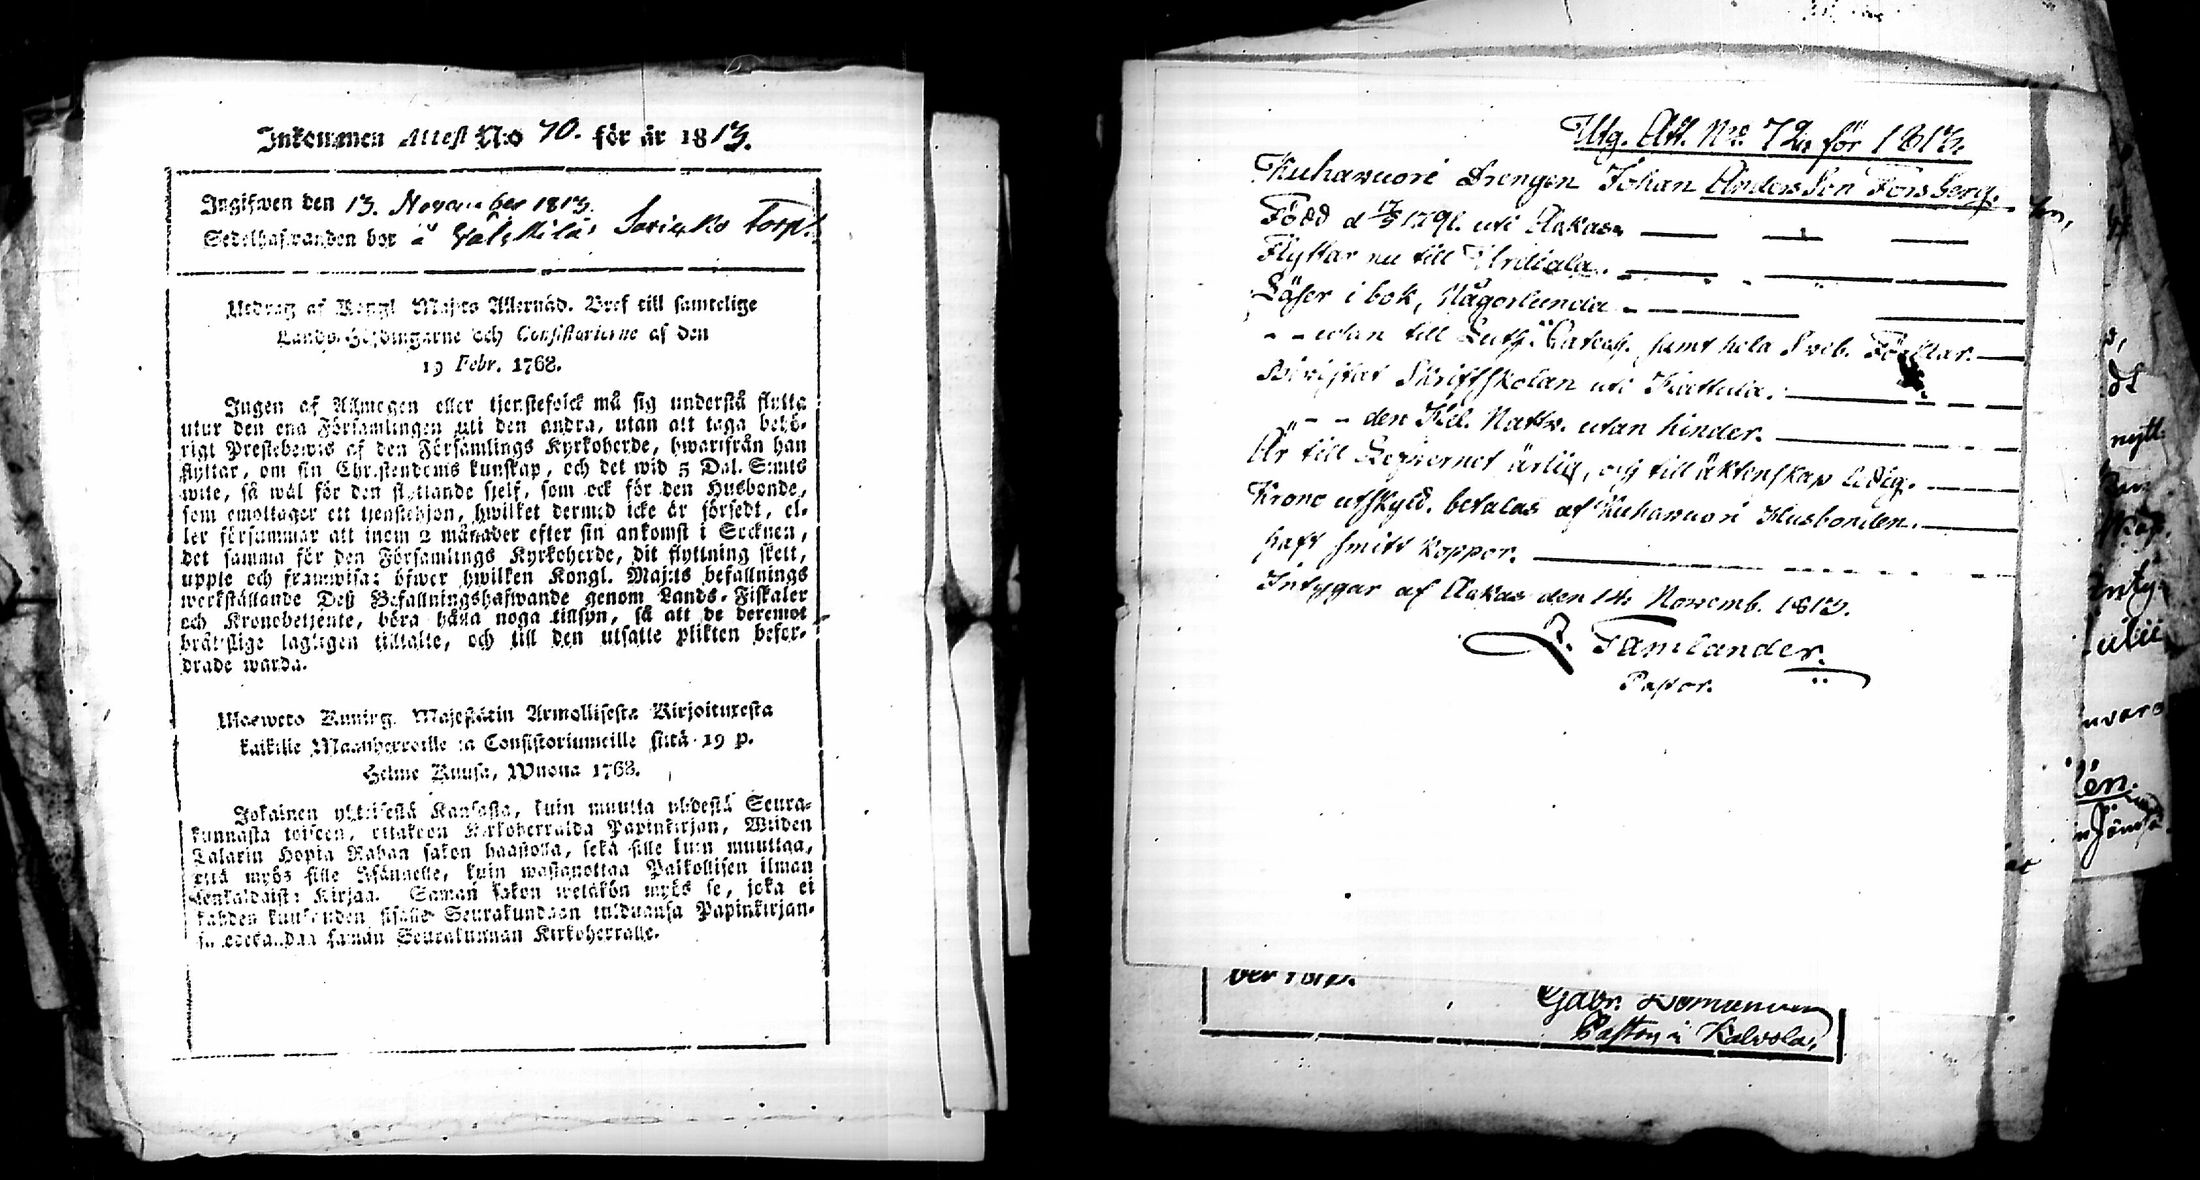 Inkommen Attest N:o 70. för år 1813.
Ingifwen den 13. November 1813.
Sedelhafwanden bor å Torp.
Utdrag af Kongl. Maj:ts Allernåd. Bref till samtelige
Lands-Höfdingarne och Consistorierne af den
19 Febr. 1768.
Ingen af Allmogen eller tjenstefolck må sig understå flytta
utur den ena Församlingen uti den andra, utan att taga behö-
rigt Prestebewis af den Församlings Kyrkoherde, hwarifrån han
flyttar, om sin Christendoms kunskap, och det wid 5 Dal. S:mts
wite, så wäl för den flyttande sjelf, som ock för den Husbonde,
som emottager ett tjenstehjon, hwilket dermed icke är försedt, el-
ler försummar att inom 2 månader efter sin ankomst i Socknen,
det samma för den Församlings Kyrkoherde, dit flyttning skett,
uppte och framwisa: öfwer hwilken Kongl. Maj:ts befallnings
werkställande Deß Befallningshafwande genom Lands-Fiskaler
och Kronobetjente, böra hålla noga tillsyn, så att de deremot
brått­slige lagligen tilltalte, och till den utsatte plikten befor-
drade warda.
Ulosweto Kuning. Majestätin Armollisesta Kirjoituxesta
kaikille Maanherroille ja Consistoriumeille siitä 19 p.
Helme Kuusa, Wuona 1768.
Jokainen yhteisestä Kansasta, kuin muutta yhdestä Seura-
kunnasta toiseen, ottakoon Kirkoherralda Papinkirjan, Wiiden
Talarin Hopia Rahan sakon haastolla, sekä sille kuin muuttaa,
että myös sille Isännelle, kuin wastanottaa Palkollisen ilman
senkaldaista Kirjaa. Saman sakon wetäkön myös se, joka ei
kahden kuukauden sisälle Seurakundaan tulduansa Papinkirjan-
sa saman Seurakunnan Kirkoherralle.
Utg. Att. Nro. 72. för 1813.
Kuhavuori Drengen Johan Andersson Forsberg.
Född d 17/5 1791. uti Aakas
Flyttar nu till Urdiala.
Läser i bok, Någorlunda
- - utan till Luth. Catech. samt hela Sveb. Förklar.
Bivistat Skriftskolan uti
- - den H:el. Nattv. utan hinder.
Är till Lefvernet ärlig, och till äktenskap ledig.
Krono utskyld. betalas af Kuhavuori Husbonden.
haft smitt koppor.
Intygar af Aakas den 14. Novemb. 1813.
Tamlander.
Pastor.
Gabr.
Pastor i Kalvola.